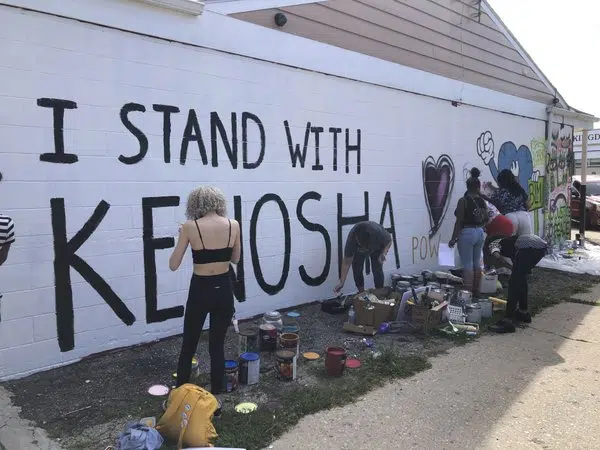 I STAND WITH
KENOSHA
POW